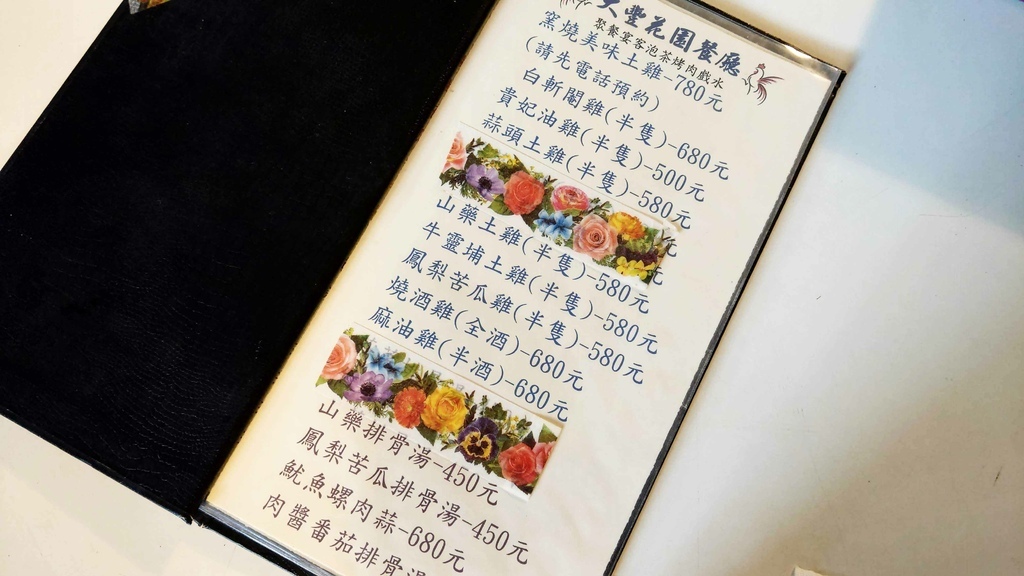 大豐花園餐廳
聚餐宴客泡茶烤肉戲水
窯燒美味土雞-780元
(請先電話預約)
白斬閹雞(半隻)-680元
貴妃油雞(半隻)-500元
蒜頭土雞(半隻)-580元
山藥土雞(半隻)-580元
牛靈埔土雞(半隻)-580元
鳳梨苦瓜雞(半隻)-580元
燒酒雞(全酒)-680元
麻油雞(半酒)-680元
山藥排骨湯-450元
鳳梨苦瓜排骨湯-450元
魷魚螺肉蒜-680元
肉醬番茄排骨湯